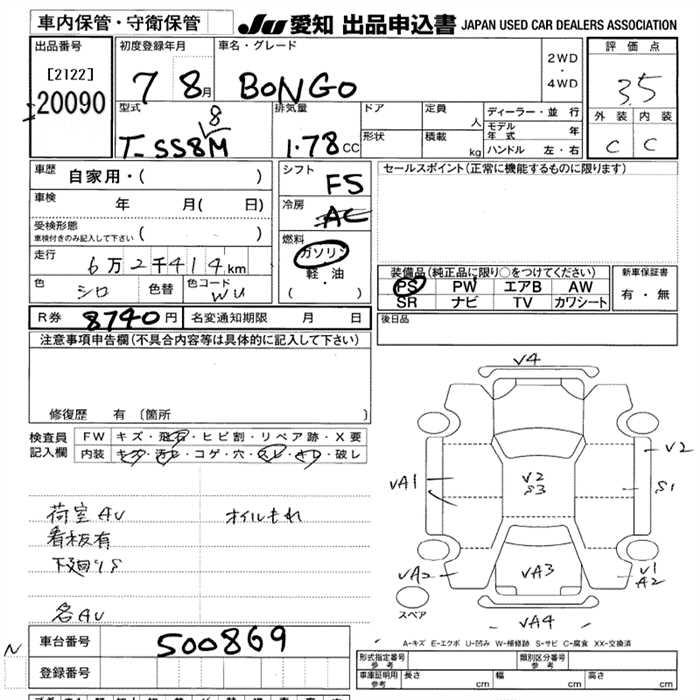 車内保管・守衛保管
JU 愛知 出品申込書 JAPAN USED CAR DEALERS ASSOCIATION
出品番号
[2122]
20090
初度登録年月
7 8月
車名・グレード
BONGO
2WD
・
4WD
評価点
3.5
外装 内装
C C
型式
8
T-SS8M
排気量
1.78 CC
ドア
形状
定員
人
積載
kg
ディーラー・並行
モデル年式 年
ハンドル 左・右
車歴
自家用・( )
車検
年 月( 日)
受検形態
車検付きのみ記入して下さい ( )
走行
6万2千414km
色
シロ
色替
色コード
WU
シフト
F5
冷房
AC
燃料
ガソリン
・
軽・油
( )
セールスポイント(正常に機能するものに限ります)
装備品(純正品に限り○をつけてください)
PS PW エアB AW
SR ナビ TV カワシート
新車保証書
有・無
R券 8740円
名変通知期限 月 日
後日品
注意事項申告欄(不具合内容等は具体的に記入して下さい)
修復歴 有〔箇所 〕
検査員
記入欄
FW キズ・飛石・ヒビ割・リペア跡・X要
内装 キズ・汚レ・コゲ・穴・スレ・キレ・破レ
荷室AU
オイルもれ
看板有
下廻りS
名AU
V4
V2
VA1
V2
S3
S1
VA2
VA3
V1
A2
スペア
VA4
A-キズ E-エクボ U-凹み W-補修跡 S-サビ C-腐食 XX-交換済
N
車台番号
500869
登録番号
形式指定番号
参考
類別区分番号
参考
車庫証明用
参考
長さ cm
幅 cm
高さ cm